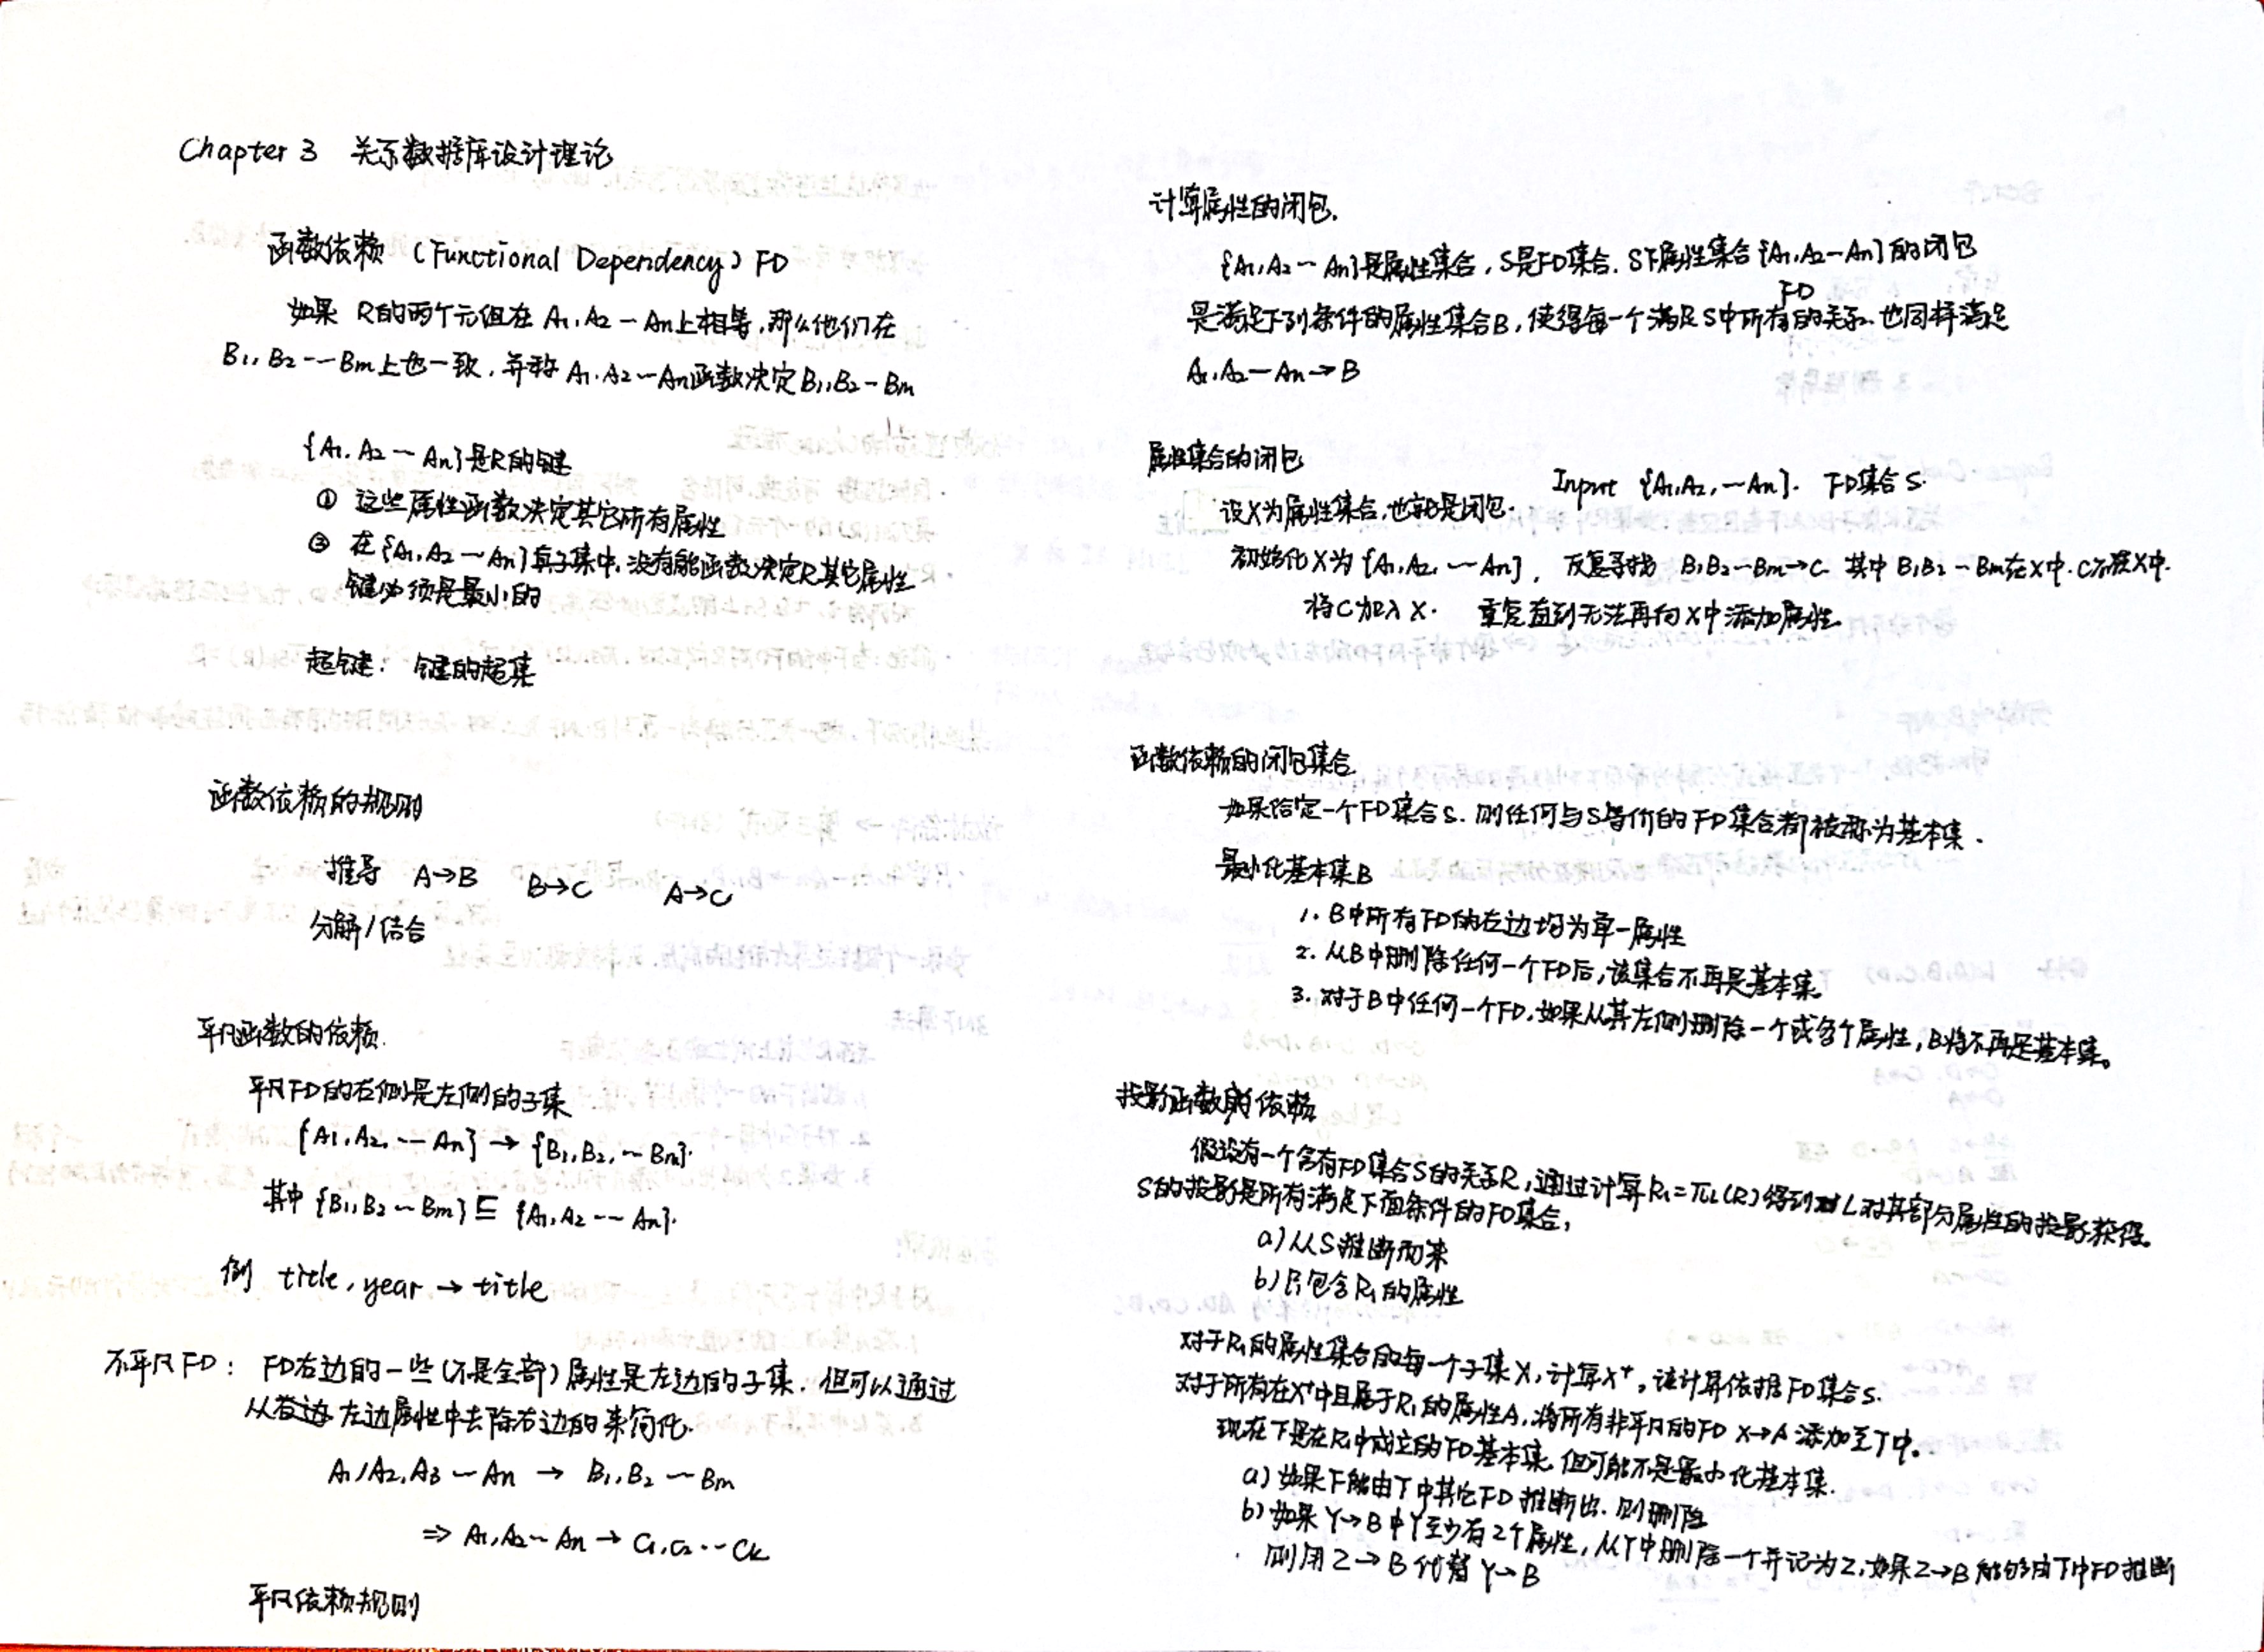 Chapter 3 关系数据库设计理论
函数依赖 (Functional Dependency) FD
如果 R的两个元组在 A1,A2 — An上相等,那么他们在
B1,B2 --- Bm上也一致,并称 A1,A2 — An函数决定B1,B2 — Bm
{A1,A2 — An}是R的键
① 这些属性函数决定其它所有属性
② 在{A1,A2 — An}真子集中,没有能函数决定R其它属性
键必须是最小的
超键: 键的超集
函数依赖的规则
推导 A→B B→C A→C
分解/结合
平凡函数的依赖.
平凡FD的右侧是左侧的子集
{A1,A2, --- An} → {B1,B2, --- Bm}.
其中 {B1,B2 — Bm} ⊆ {A1,A2 --- An}.
例 title, year → title
不平凡FD: FD右边的一些(不是全部)属性是左边的子集. 但可以通过
从 左边属性中去除右边的来简化.
A1,A2,A3 — An → B1,B2 — Bm
⇒ A1,A2 — An → C1,C2 --- Ck
平凡依赖规则
计算属性的闭包.
{A1,A2 — An}是属性集合,S是FD集合. S下属性集合{A1,A2 — An}的闭包
FD
是满足下列条件的属性集合B,使得每一个满足S中所有的关系.也同样满足
A1,A2 — An → B
属性集合的闭包
Input {A1,A2, — An}. FD集合S.
设X为属性集合,也就是闭包.
初始化X为{A1,A2, — An}, 反复寻找 B1B2 — Bm→C. 其中B1B2 — Bm在X中.C不在X中.
将C加入X. 重复直到无法再向X中添加属性.
函数依赖的闭包集合
如果给定一个FD集合S. 则任何与S等价的FD集合都被称为基本集.
最小化基本集B
1. B中所有FD的右边均为单一属性
2. 从B中删除任何一个FD后,该集合不再是基本集.
3. 对于B中任何一个FD,如果从其左侧删除一个或多个属性,B将不再是基本集。
投影函数的依赖
假设有一个含有FD集合S的关系R,通过计算R1=πL(R)得到 L对其部分属性的投影获得.
S的投影是所有满足下面条件的FD集合,
a)从S推断而来
b)只包含R1的属性
对于R1的属性集合的每一个子集X,计算X⁺,该计算依据FD集合S.
对于所有在X⁺中且属于R1的属性A,将所有非平凡的FD X→A 添加至T中。
现在T是在R1中成立的FD基本集.但可能不是最小化基本集.
a)如果F能由T中其它FD推断出.则删除
b)如果Y→B中Y至少有2个属性,从Y中删除一个并记为Z,如果Z→B能够由T中FD推断
则用Z→B代替Y→B